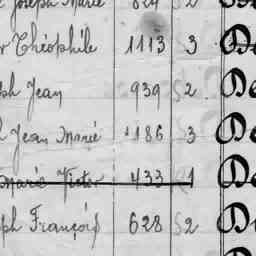 Joseph Marie 824 S2
Théophile 1113 3 De
ph Jean 939 S2 De
h Jean Marié 1186 3 De
Marié Victor 433 1 De
ph François 628 S2 De